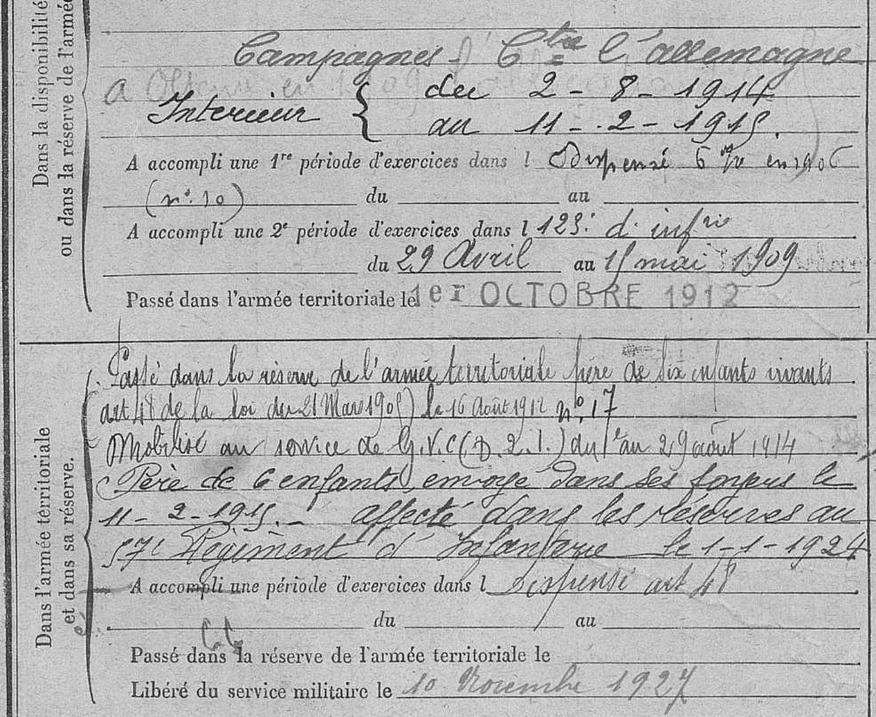 Dans la disponibilité
ou dans la réserve de l'armée
Campagnes Ctre l'allemagne
Intérieur { du 2 - 8 - 1914
au 11 - 2 - 1915.
A accompli une 1re période d'exercices dans l Dispensé en 1906
(n° 10) du au
A accompli une 2e période d'exercices dans l 123e d'infrie
du 29 Avril au 15 mai 1909
Passé dans l'armée territoriale le 1er OCTOBRE 1912
Dans l'armée territoriale
et dans sa réserve.
Passé dans la réserve de l'armée territoriale père de six enfants vivants
(art 48 de la loi du 21 Mars 1905) le 16 Août 1912 n° 17
Mobilisé au service de G.V.C du 1er au 29 août 1914
Père de 6 enfants envoyé dans ses foyers le
11 - 2 - 1915. - affecté dans les réserves au
57e Régiment d'Infanterie le 1 - 1 - 1924
A accompli une période d'exercices dans l Dispensé art 48
du au
Passé dans la réserve de l'armée territoriale le
Libéré du service militaire le 10 Novembre 1927